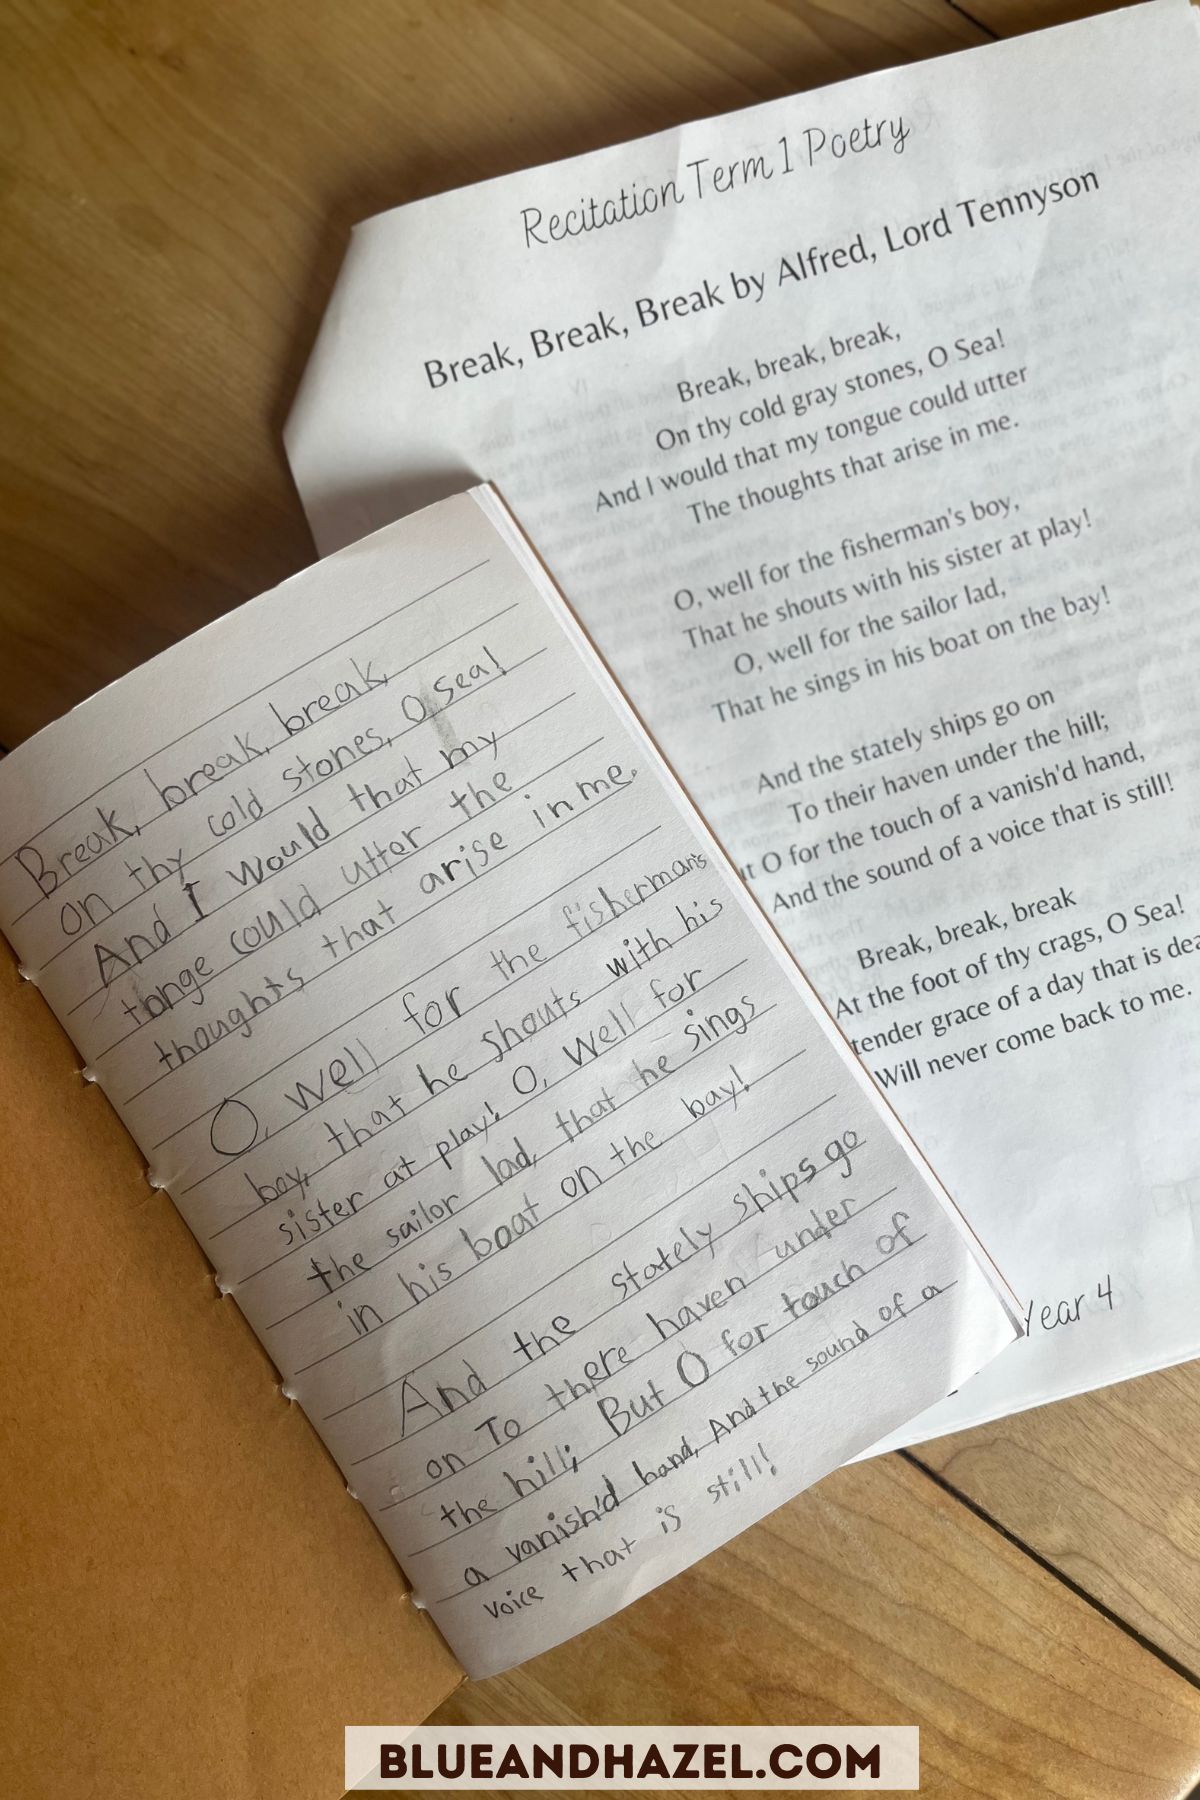 Recitation Term 1 Poetry
Break, Break, Break by Alfred, Lord Tennyson
Break, break, break,
On thy cold gray stones, O Sea!
And I would that my tongue could utter
The thoughts that arise in me.
O, well for the fisherman's boy,
That he shouts with his sister at play!
O, well for the sailor lad,
That he sings in his boat on the bay!
And the stately ships go on
To their haven under the hill;
O for the touch of a vanish'd hand,
And the sound of a voice that is still!
Break, break, break
At the foot of thy crags, O Sea!
tender grace of a day that is
Will never come back to me.
Year 4
Break, break, break,
on thy cold stones, O sea!
And I would that my
tonge could utter the
thoughts that arise in me.
O, well for the fisherman's
boy, that he shouts with his
sister at play! O, well for
the sailor lad, that he sings
in his boat on the bay!
And the stately ships go
on To there haven under
the hill; But O for touch of
a vanish'd hand, And the sound of a
voice that is still!
BLUEANDHAZEL.COM